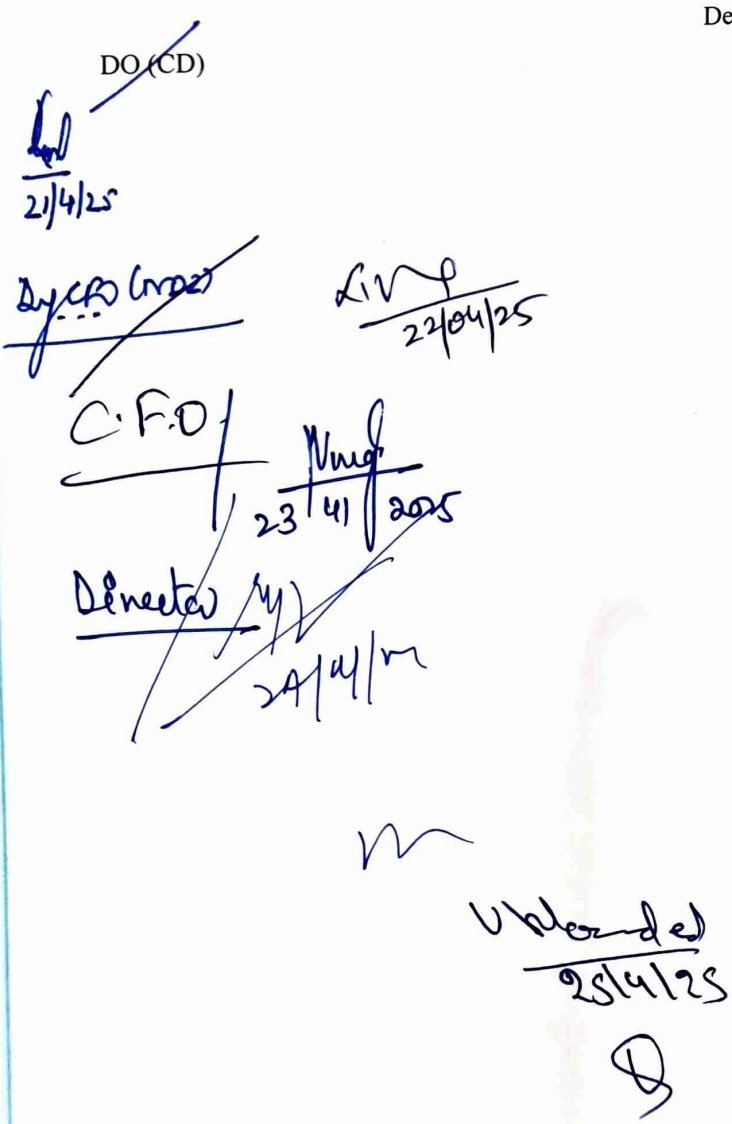 De
DO (CD)
21/4/25
Dy CFO (NDZ)
22/04/25
C.F.O.
23/4/2025
Director
24/4/25
Uploaded
25/4/25